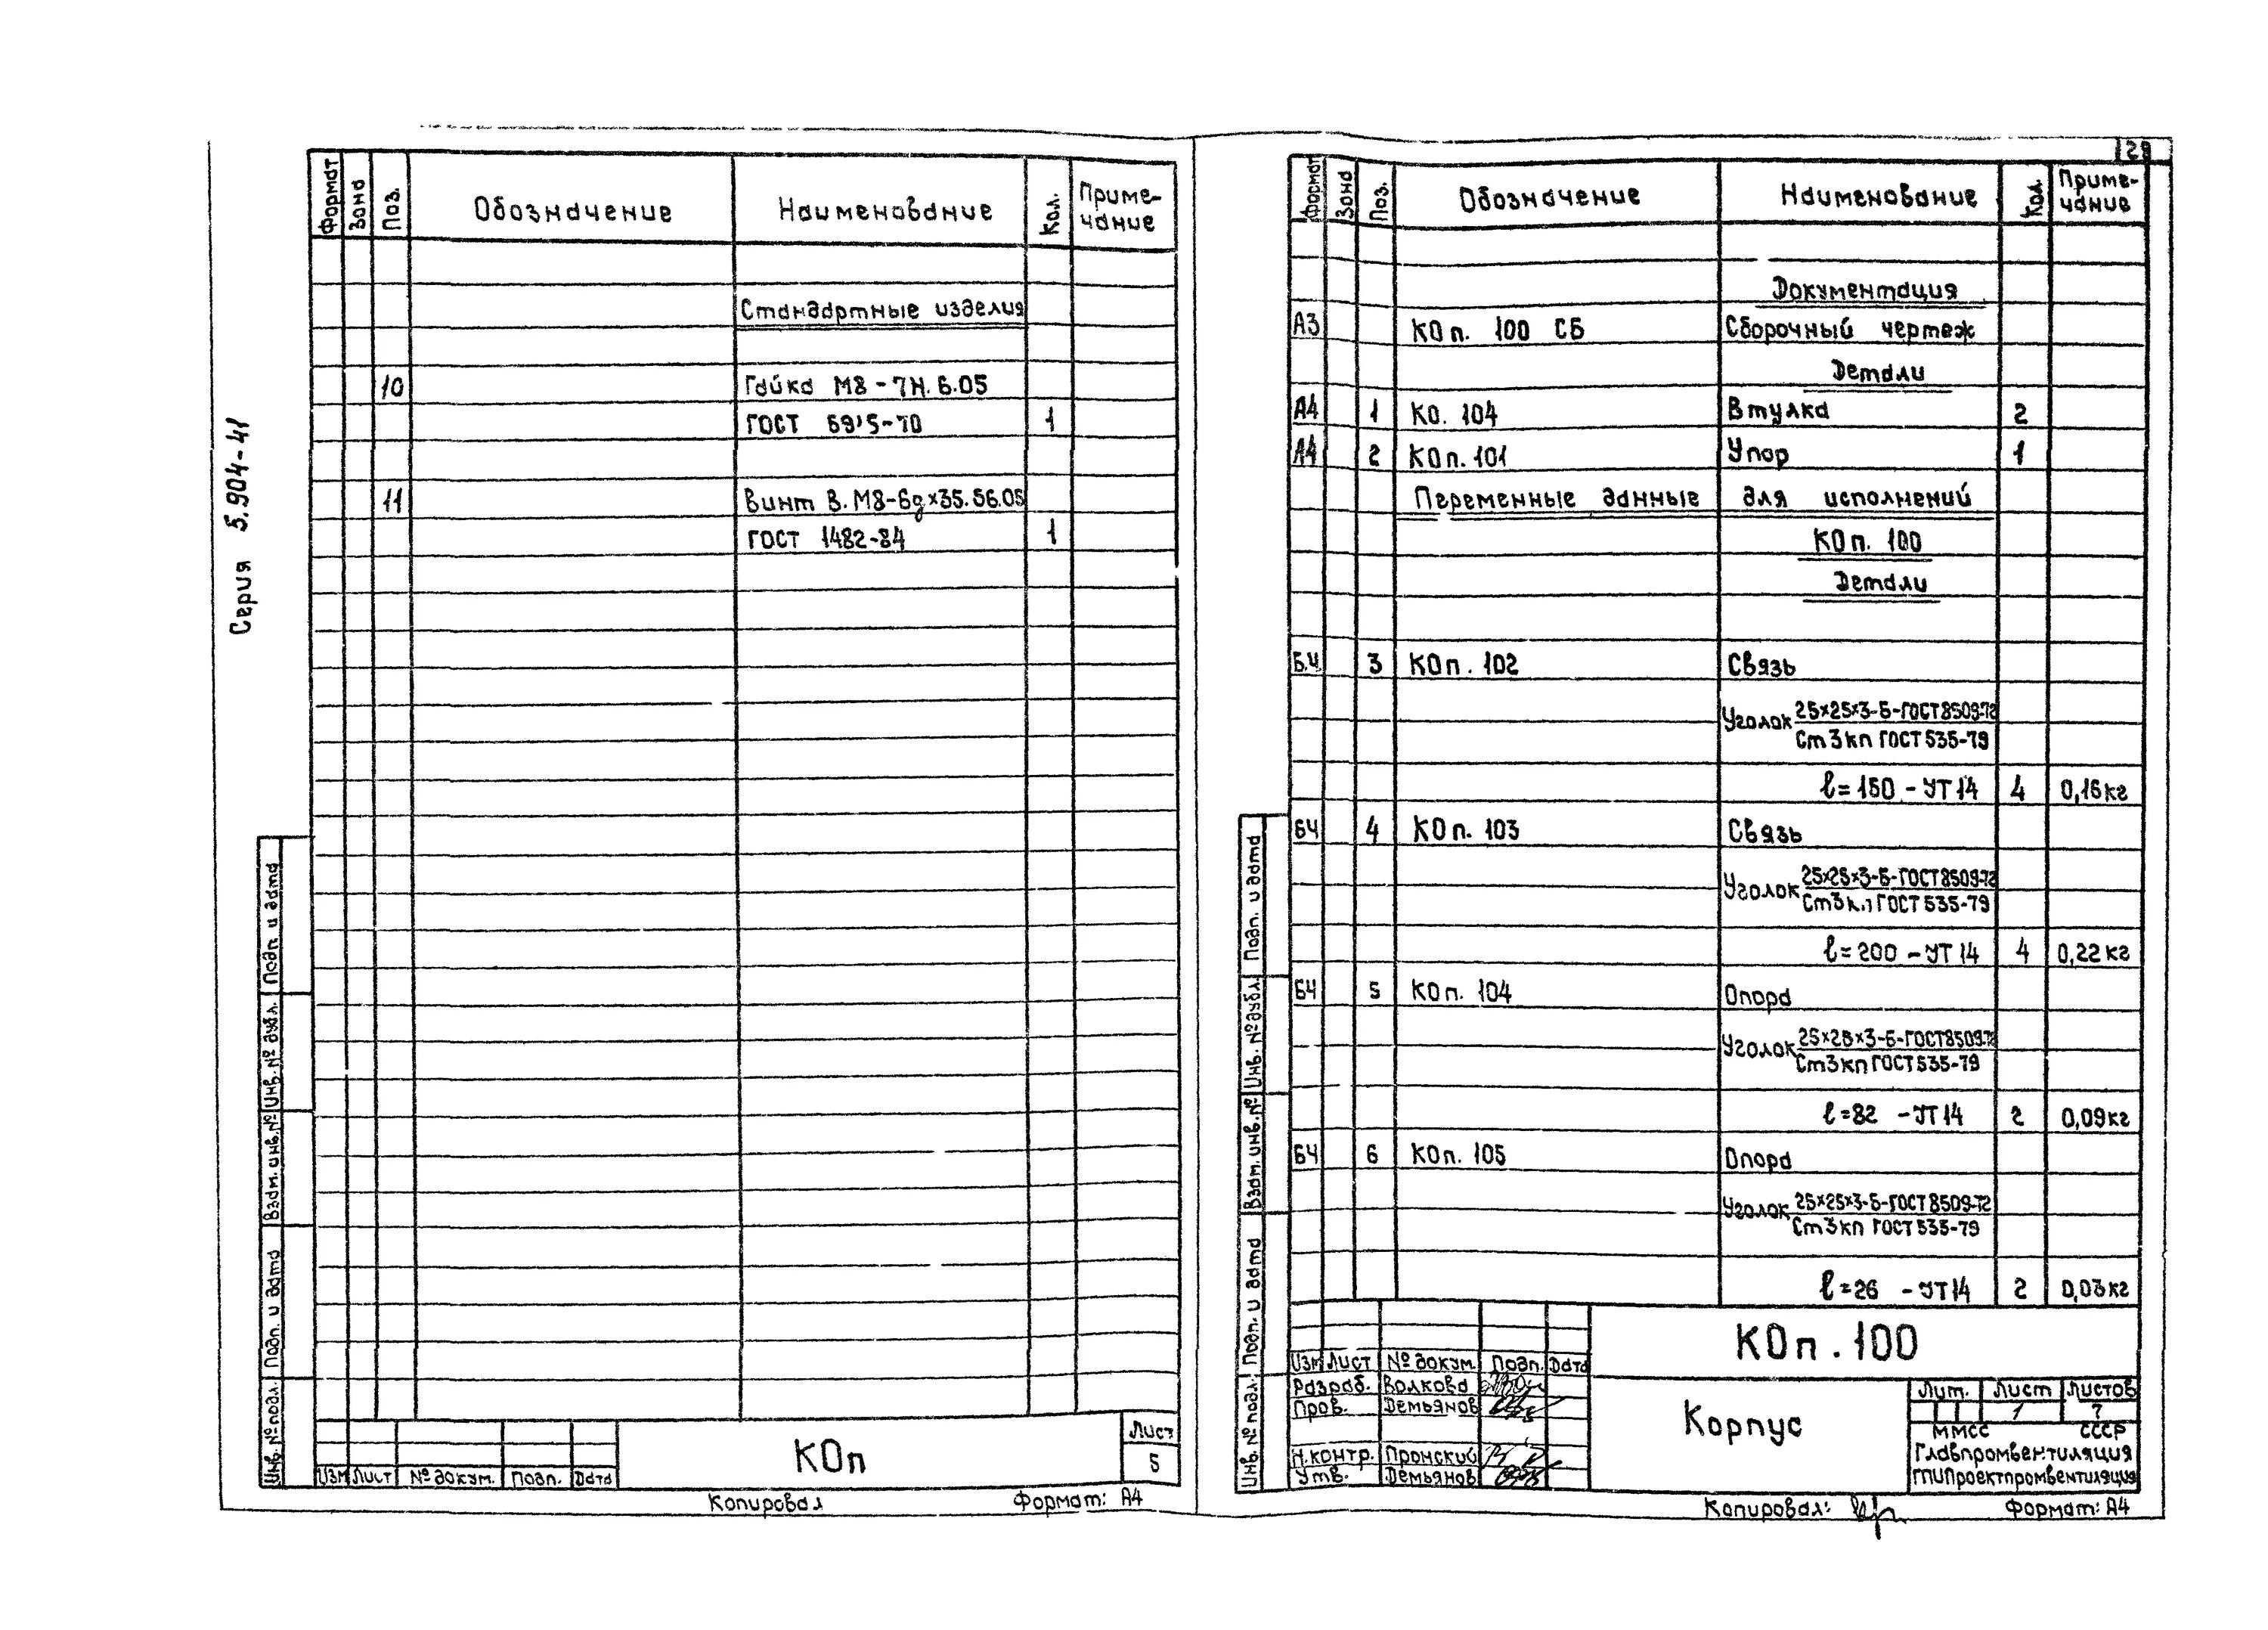 Серия 5.904-41
Формат Зона Поз. Обозначение Наименование Кол. Приме-чание
Стандартные изделия
10 Гайка М8-7Н.6.05
ГОСТ 5915-70 1
11 Винт В.М8-6g×35.56.05
ГОСТ 1482-84 1
Инв. № подл. Подп. и дата Взам. инв. № Инв. № дубл. Подп. и дата
Изм Лист № докум. Подп. Дата
КОп
Лист
5
Копировал Формат: А4
129
Формат Зона Поз. Обозначение Наименование Кол. Приме-чание
Документация
А3 КОп. 100 СБ Сборочный чертеж
Детали
А4 1 КО. 104 Втулка 2
А4 2 КОп. 101 Упор 1
Переменные данные для исполнений
КОп. 100
Детали
Б.Ч 3 КОп. 102 Связь
Уголок 25×25×3-Б-ГОСТ 8509-72
Ст3кп ГОСТ 535-79
ℓ=150 - УТ14 4 0,16кг
БЧ 4 КОп. 103 Связь
Уголок 25×25×3-Б-ГОСТ 8509-72
Ст3кп ГОСТ 535-79
ℓ=200 - УТ14 4 0,22кг
БЧ 5 КОп. 104 Опора
Уголок 25×25×3-Б-ГОСТ 8509-72
Ст3кп ГОСТ 535-79
ℓ=82 - УТ14 2 0,09кг
БЧ 6 КОп. 105 Опора
Уголок 25×25×3-Б-ГОСТ 8509-72
Ст3кп ГОСТ 535-79
ℓ=26 - УТ14 2 0,03кг
Инв. № подл. Подп. и дата Взам. инв. № Инв. № дубл. Подп. и дата
КОп. 100
Изм Лист № докум. Подп. Дата
Разраб. Волкова
Пров. Демьянов
Н.контр. Пронский
Утв. Демьянов
Корпус
Лит. Лист Листов
1 7
ММСС СССР
Главпромвентиляция
ГПИПроектпромвентиляция
Копировал: Формат: А4